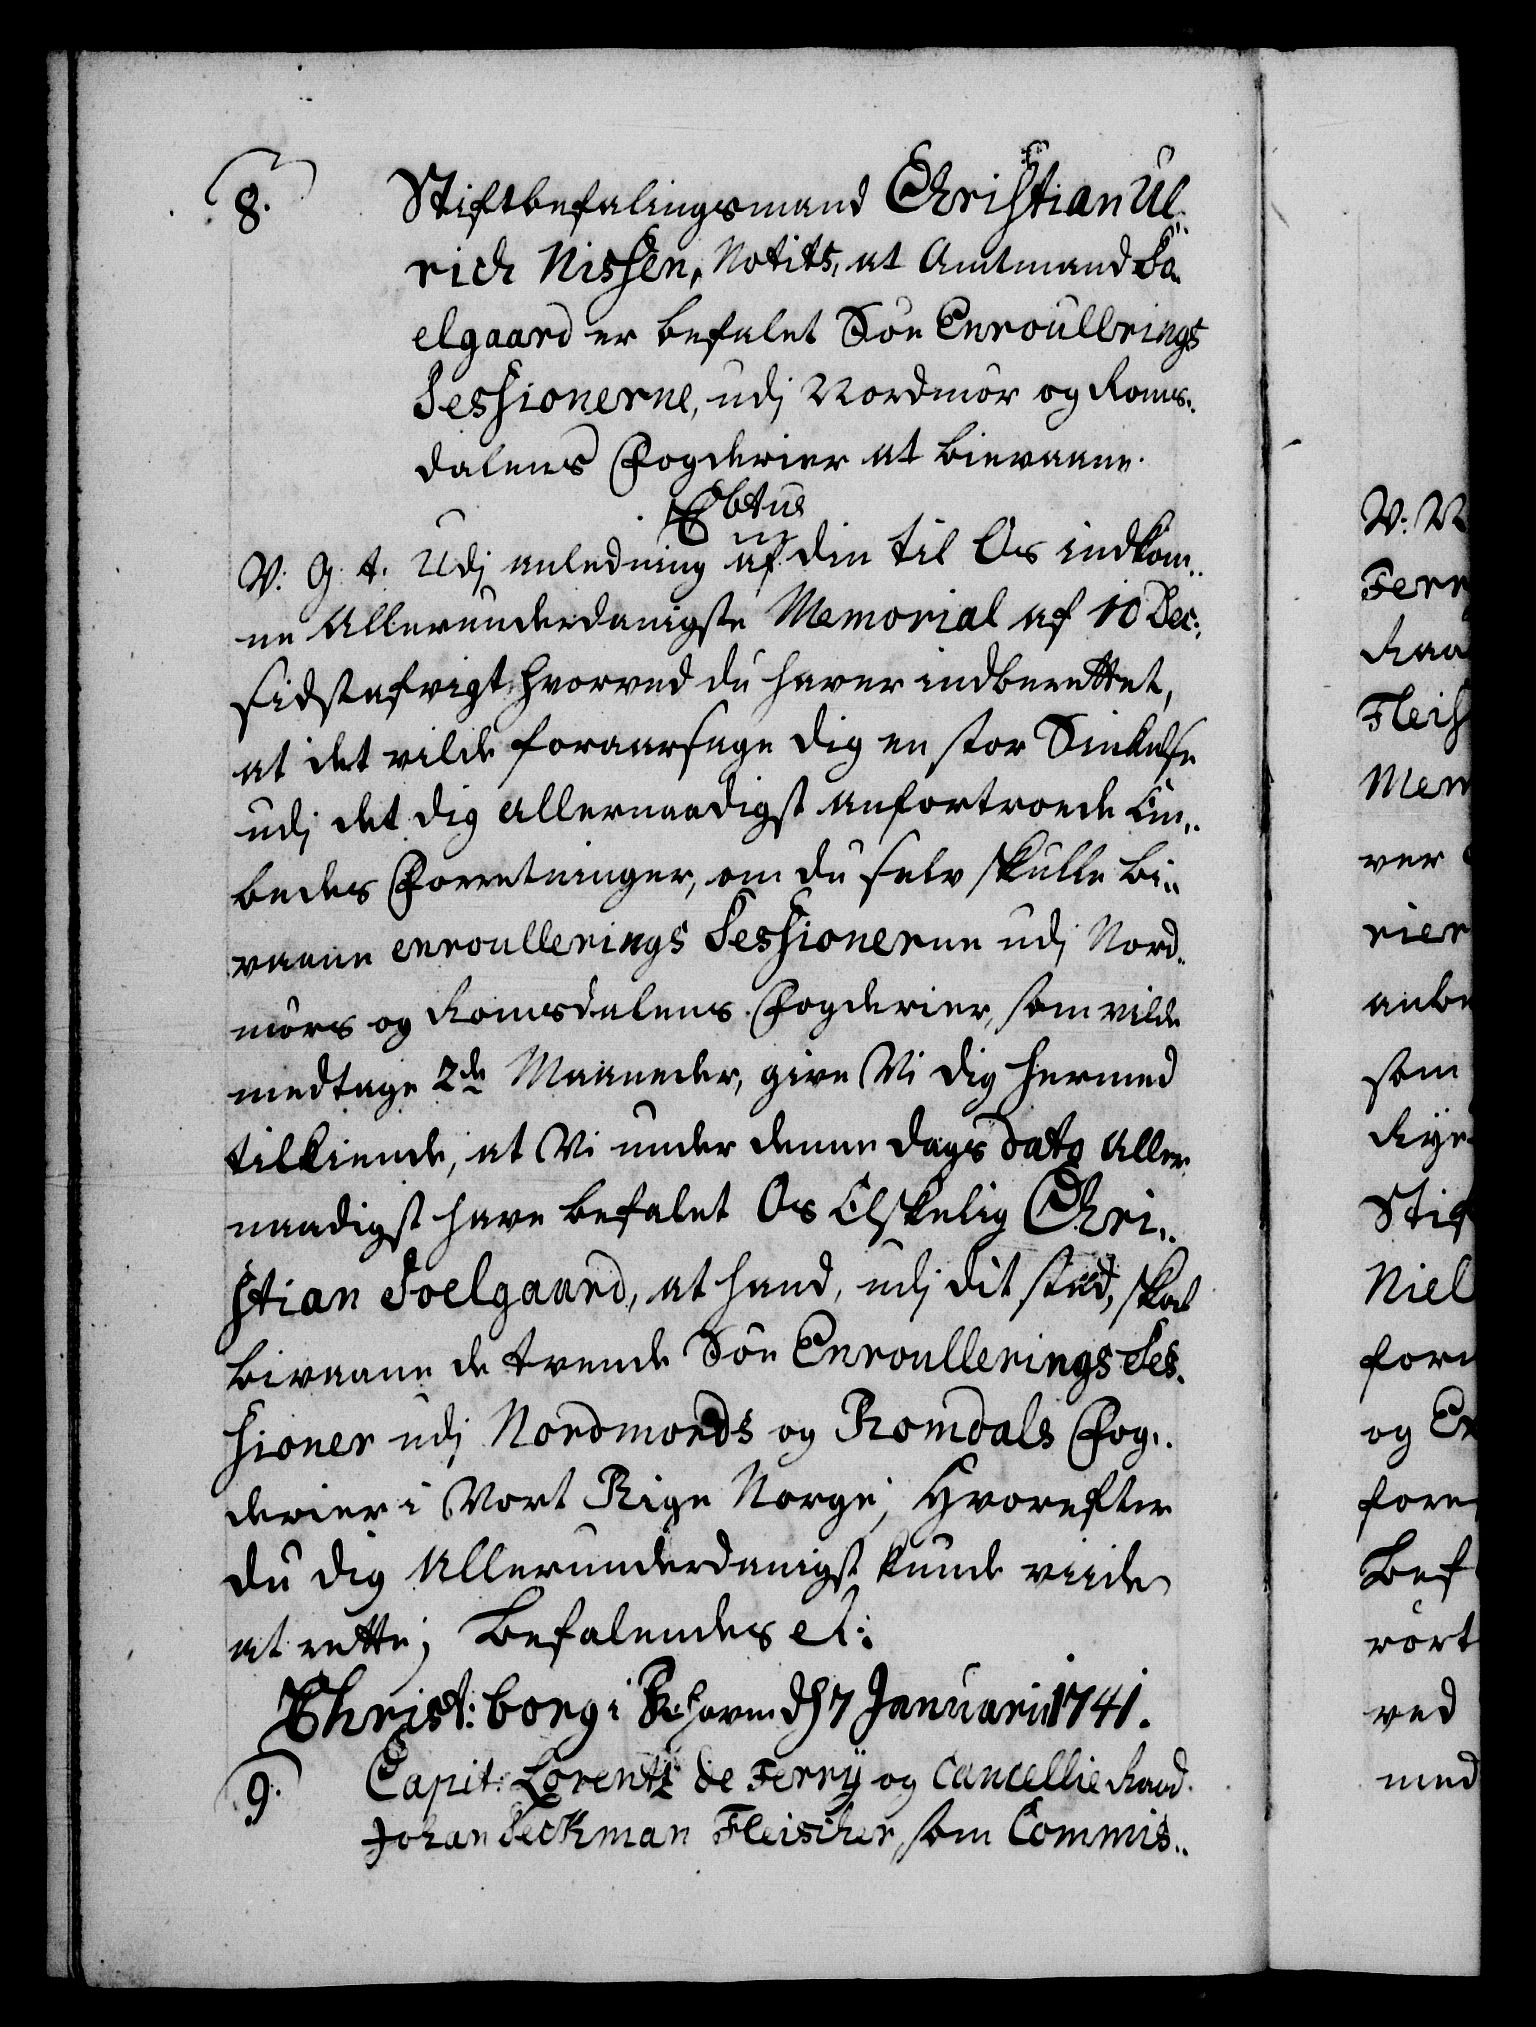 8.
Stiftbefalingsmand Christian Ul„
rich Nissen, Notits, at Amtmand So„
elgaard er befalet Söe Enroullerings
Sessionerne, udj Nordmör og Roms„
dalens Fogderier at bievaane.
V. G. t. Udj anledning af din til Os indkom„
ne Allerunderdanigste Memorial af 10 Dec:
sidstafvigt, hvorved du haver indberettet,
at det vilde foraarsage dig en stor Sinkelse
udj det dig allernaadigst anfortroede Em„
bedes Forretninger, om du selv skulle bi„
vaane enroullerings Sessionerne udj Nord„
mörs og Romsdalens Fogderier, som vilde
medtage 2de Maaneder, give Vi dig hermed
tilkiende, at Vi under denne Dags Dato aller„
naadigst have befalet Os Elskelig Chri„
stian Soelgaard, at hand, udj dit stæd, skal
bivaane de trende Söe Enroullerings Ses„
sioner udj Nordmords og Romdals Fog„
derier i Vort Rige Norge; Hvorefter
du dig Allerunderdanigst kunde viide
at rette; Befalendes etc:
Christ: borg i Kh havn d. 7 Januarii 1741.
9.
Capit: Lorentz de Ferrÿ og Cancellie Raad
Johan Seckman Fleischer, som Commis„
V: V
Ferr
Raa
Fleis
Mem
ver
rier
anbe
som
Rye
Stif
Niel
for
og En
fore
Bef
rört
ved
med